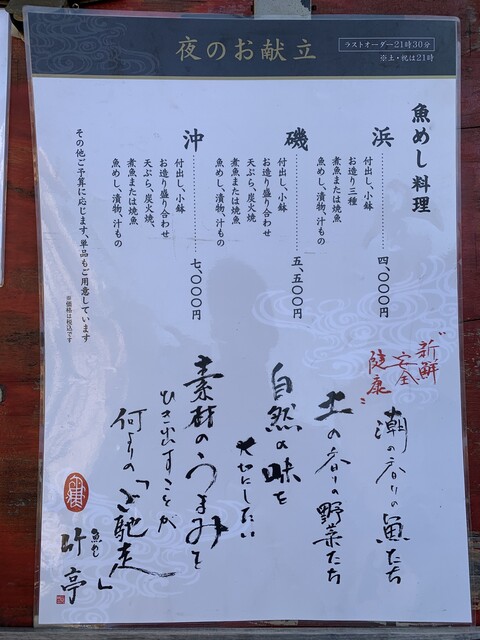 夜のお献立
ラストオーダー21時30分
※土・祝は21時
魚めし料理
浜…………四、〇〇〇円
付出し、小鉢
お造り三種
煮魚または焼魚
魚めし、漬物、汁もの
磯…………五、五〇〇円
付出し、小鉢
お造り盛り合わせ
天ぷら、炭火焼、
煮魚または焼魚
魚めし、漬物、汁もの
沖…………七、〇〇〇円
付出し、小鉢
お造り盛り合わせ
天ぷら、炭火焼、
煮魚または焼魚
魚めし、漬物、汁もの
その他ご予算に応じます、単品もご用意しています
※価格は税込です
"新鮮
安全
健康"
潮の香りの魚たち
土の香りの野菜たち
自然の味を
大切にしたい
素材のうまみを
ひき出すことが
何よりの「ご馳走」
魚めし
亭